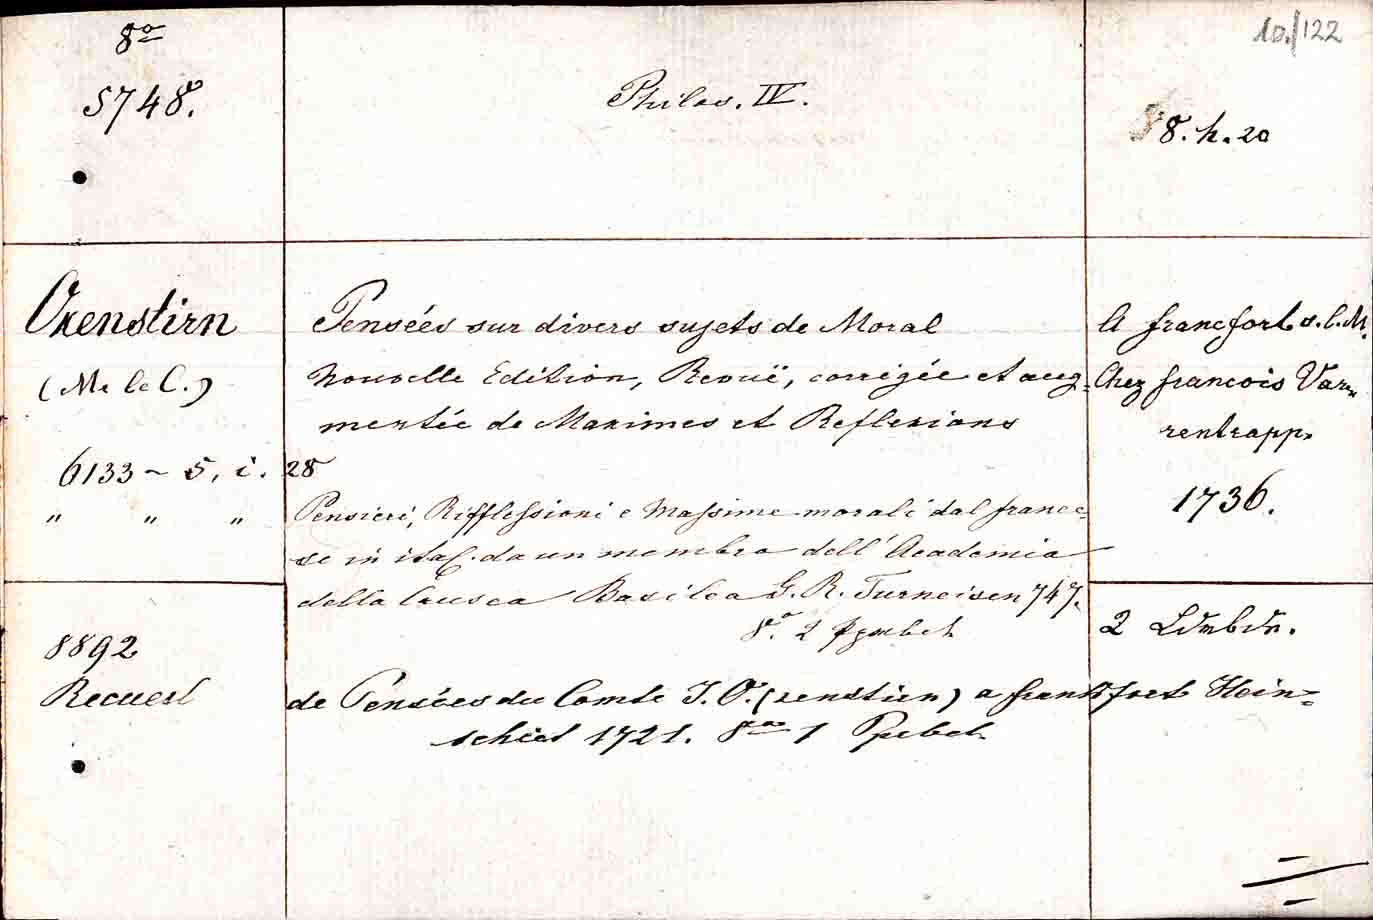 8º
5748.
Philos. IV.
10./122
8. h. 20
Oxenstirn
(Mr le C.)
Pensées sur divers sujets de Moral
Nouvelle Edition, Revuë, corrigée et aug-
mentée de Maximes et Reflexions
A francfort s. l. M.
Chez francois Var-
rentrapp.
1736.
6133 ~ 5. i. 28
" " "
Pensieri, Rifflessioni e Massime morali dal france-
se in ital. da un membro dell' Academia
della Crusca Basilea G. R. Turneisen 747.
8.º 2
2
8892
Recueil
de Pensées du Comte J. O. (xenstirn) a frankfort Hein-
schiet 1721. 8º 1